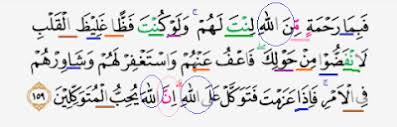 فَبِمَا رَحْمَةٍ مِّنَ اللّٰهِ لِنْتَ لَهُمْ ۚ وَلَوْ كُنْتَ فَظًّا غَلِيْظَ الْقَلْبِ
لَانْفَضُّوْا مِنْ حَوْلِكَ ۖ فَاعْفُ عَنْهُمْ وَاسْتَغْفِرْ لَهُمْ وَشَاوِرْهُمْ
فِى الْاَمْرِۚ فَاِذَا عَزَمْتَ فَتَوَكَّلْ عَلَى اللّٰهِ ۗ اِنَّ اللّٰهَ يُحِبُّ الْمُتَوَكِّلِيْنَ ١٥٩